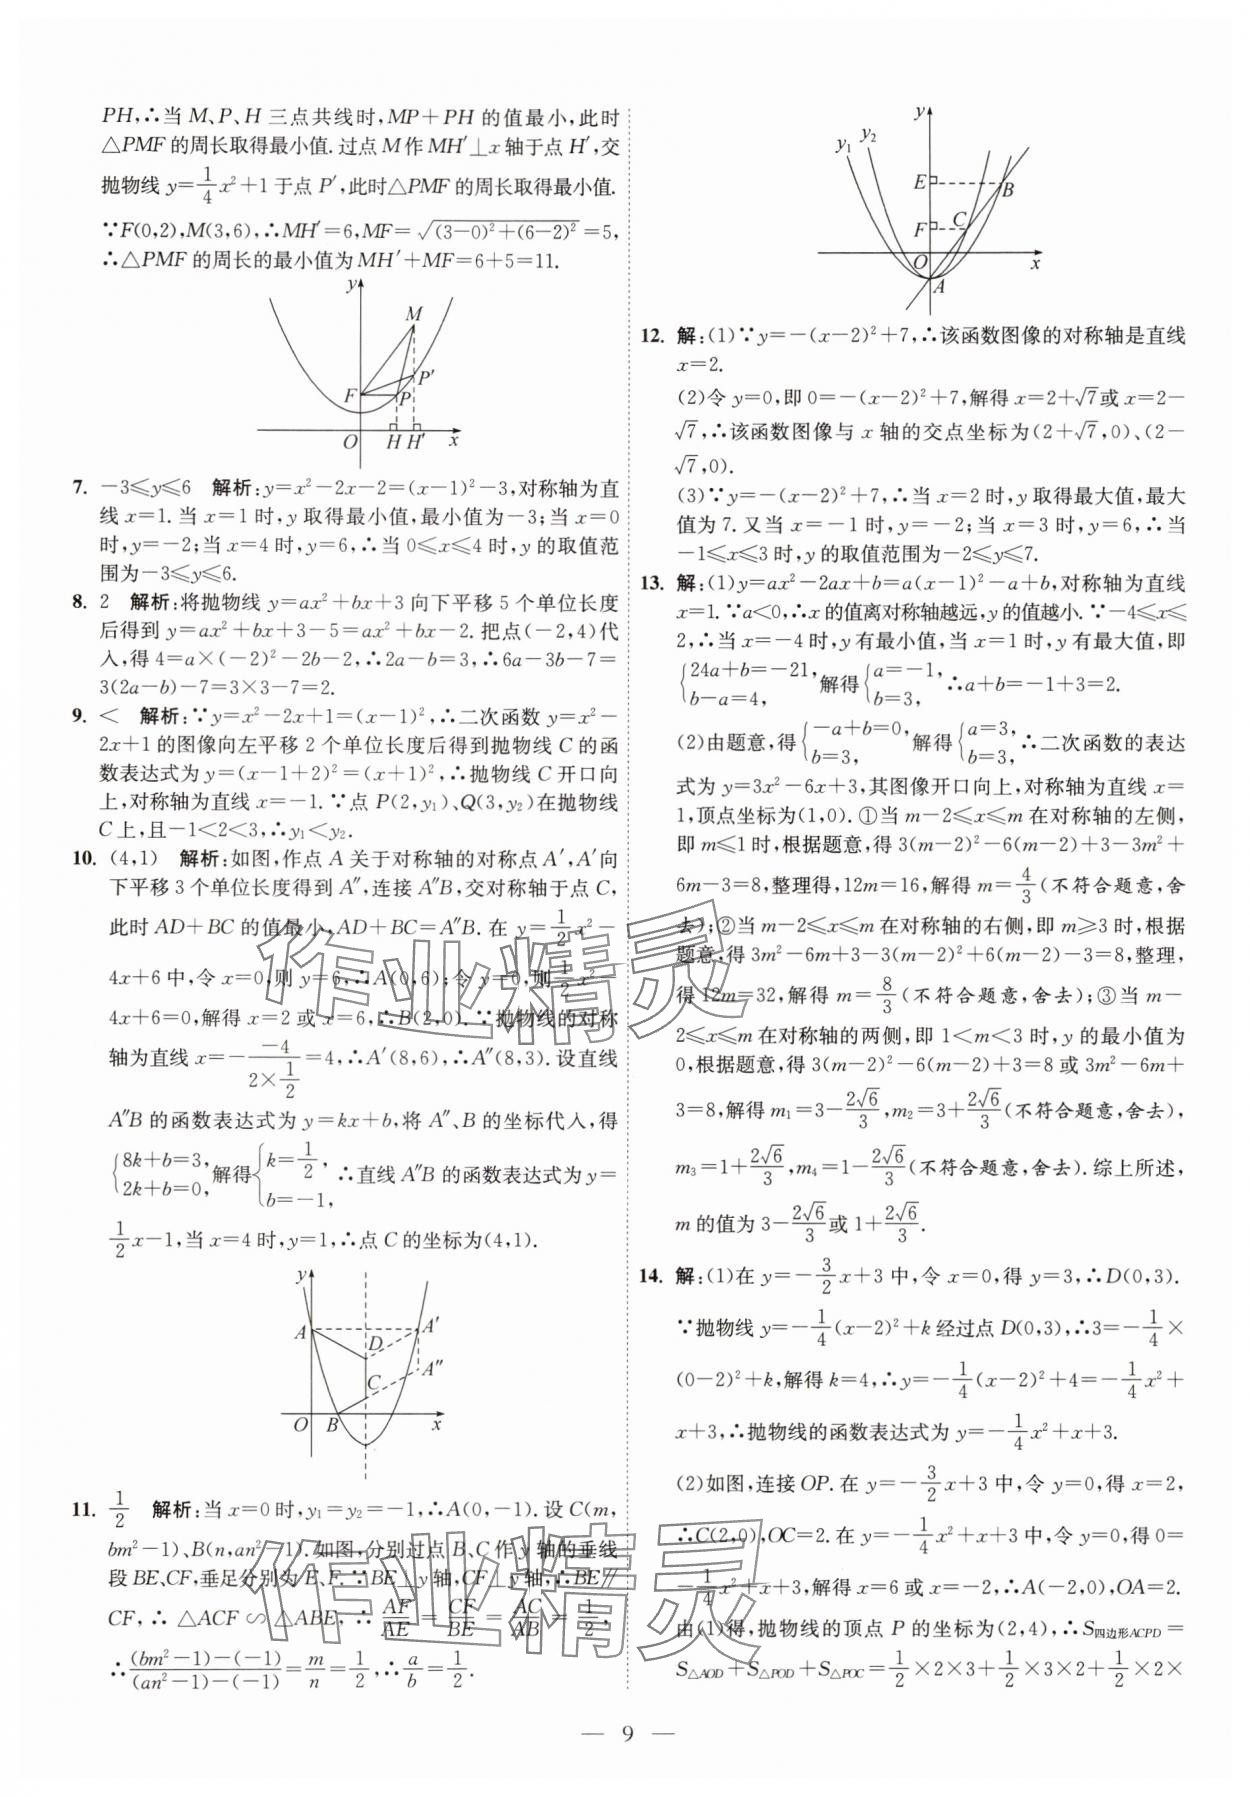 PH,∴当 M、P、H 三点共线时,MP+PH 的值最小,此时
△PMF 的周长取得最小值.过点 M 作 MH′⊥x 轴于点 H′,交
抛物线 y=1/4x²+1 于点 P′,此时△PMF 的周长取得最小值.
∵F(0,2),M(3,6),∴MH′=6,MF=√((3−0)²+(6−2)²)=5,
∴△PMF 的周长的最小值为 MH′+MF=6+5=11.
y
M
F
P′
P
O H H′ x
7. −3≤y≤6 解析:y=x²−2x−2=(x−1)²−3,对称轴为直
线 x=1.当 x=1 时,y 取得最小值,最小值为−3;当 x=0
时,y=−2;当 x=4 时,y=6,∴当 0≤x≤4 时,y 的取值范
围为−3≤y≤6.
8. 2 解析:将抛物线 y=ax²+bx+3 向下平移 5 个单位长度
后得到 y=ax²+bx+3−5=ax²+bx−2.把点(−2,4)代
入,得 4=a×(−2)²−2b−2,∴2a−b=3,∴6a−3b−7=
3(2a−b)−7=3×3−7=2.
9. < 解析:∵y=x²−2x+1=(x−1)²,∴二次函数 y=x²−
2x+1 的图像向左平移 2 个单位长度后得到抛物线 C 的函
数表达式为 y=(x−1+2)²=(x+1)²,∴抛物线 C 开口向
上,对称轴为直线 x=−1.∵点 P(2,y₁)、Q(3,y₂)在抛物线
C 上,且−1<2<3,∴y₁<y₂.
10. (4,1) 解析:如图,作点 A 关于对称轴的对称点 A′,A′向
下平移 3 个单位长度得到 A″,连接 A″B,交对称轴于点 C,
此时 AD+BC 的值最小,AD+BC=A″B.在 y=1/2x²−
4x+6 中,令 x=0,则 y=6,∴A(0,6);令 y=0,则 1/2x²−
4x+6=0,解得 x=2 或 x=6,∴B(2,0).∵抛物线的对称
轴为直线 x=−(−4)/(2×1/2)=4,∴A′(8,6),∴A″(8,3).设直线
A″B 的函数表达式为 y=kx+b,将 A″、B 的坐标代入,得
{8k+b=3, 2k+b=0, 解得{k=1/2, b=−1, ∴直线 A″B 的函数表达式为 y=
1/2x−1,当 x=4 时,y=1,∴点 C 的坐标为(4,1).
y
A A′
D
A″
C
O B x
11. 1/2 解析:当 x=0 时,y₁=y₂=−1,∴A(0,−1).设 C(m,
bm²−1)、B(n,an²−1).如图,分别过点 B、C 作 y 轴的垂线
段 BE、CF,垂足分别为 E、F.∵BE⊥y 轴,CF⊥y 轴,∴BE∥
CF,∴△ACF∽△ABE,∴AF/AE=CF/BE=AC/AB=1/2,
∴((bm²−1)−(−1))/((an²−1)−(−1))=m/n=1/2,∴a/b=1/2.
y
y₁ y₂
E B
F C
O x
A
12. 解:(1)∵y=−(x−2)²+7,∴该函数图像的对称轴是直线
x=2.
(2)令 y=0,即 0=−(x−2)²+7,解得 x=2+√7或 x=2−
√7,∴该函数图像与 x 轴的交点坐标为(2+√7,0)、(2−
√7,0).
(3)∵y=−(x−2)²+7,∴当 x=2 时,y 取得最大值,最大
值为 7.又当 x=−1 时,y=−2;当 x=3 时,y=6,∴当
−1≤x≤3 时,y 的取值范围为−2≤y≤7.
13. 解:(1)y=ax²−2ax+b=a(x−1)²−a+b,对称轴为直线
x=1.∵a<0,∴x 的值离对称轴越远,y 的值越小.∵−4≤x≤
2,∴当 x=−4 时,y 有最小值,当 x=1 时,y 有最大值,即
{24a+b=−21, b−a=4, 解得{a=−1, b=3, ∴a+b=−1+3=2.
(2)由题意,得{−a+b=0, b=3, 解得{a=3, b=3, ∴二次函数的表达
式为 y=3x²−6x+3,其图像开口向上,对称轴为直线 x=
1,顶点坐标为(1,0).①当 m−2≤x≤m 在对称轴的左侧,
即 m≤1 时,根据题意,得 3(m−2)²−6(m−2)+3−3m²+
6m−3=8,整理得,12m=16,解得 m=4/3(不符合题意,舍
去);②当 m−2≤x≤m 在对称轴的右侧,即 m≥3 时,根据
题意,得 3m²−6m+3−3(m−2)²+6(m−2)−3=8,整理,
得 12m=32,解得 m=8/3(不符合题意,舍去);③当 m−
2≤x≤m 在对称轴的两侧,即 1<m<3 时,y 的最小值为
0,根据题意,得 3(m−2)²−6(m−2)+3=8 或 3m²−6m+
3=8,解得 m₁=3−2√6/3,m₂=3+2√6/3(不符合题意,舍去),
m₃=1+2√6/3,m₄=1−2√6/3(不符合题意,舍去).综上所述,
m 的值为 3−2√6/3或 1+2√6/3.
14. 解:(1)在 y=−3/2x+3 中,令 x=0,得 y=3,∴D(0,3).
∵抛物线 y=−1/4(x−2)²+k 经过点 D(0,3),∴3=−1/4×
(0−2)²+k,解得 k=4,∴y=−1/4(x−2)²+4=−1/4x²+
x+3,∴抛物线的函数表达式为 y=−1/4x²+x+3.
(2)如图,连接 OP.在 y=−3/2x+3 中,令 y=0,得 x=2,
∴C(2,0),OC=2.在 y=−1/4x²+x+3 中,令 y=0,得 0=
−1/4x²+x+3,解得 x=6 或 x=−2,∴A(−2,0),OA=2.
由(1)得,抛物线的顶点 P 的坐标为(2,4),∴S四边形ACPD=
S△AOD+S△POD+S△POC=1/2×2×3+1/2×3×2+1/2×2×
— 9 —
作业精灵
作业精灵